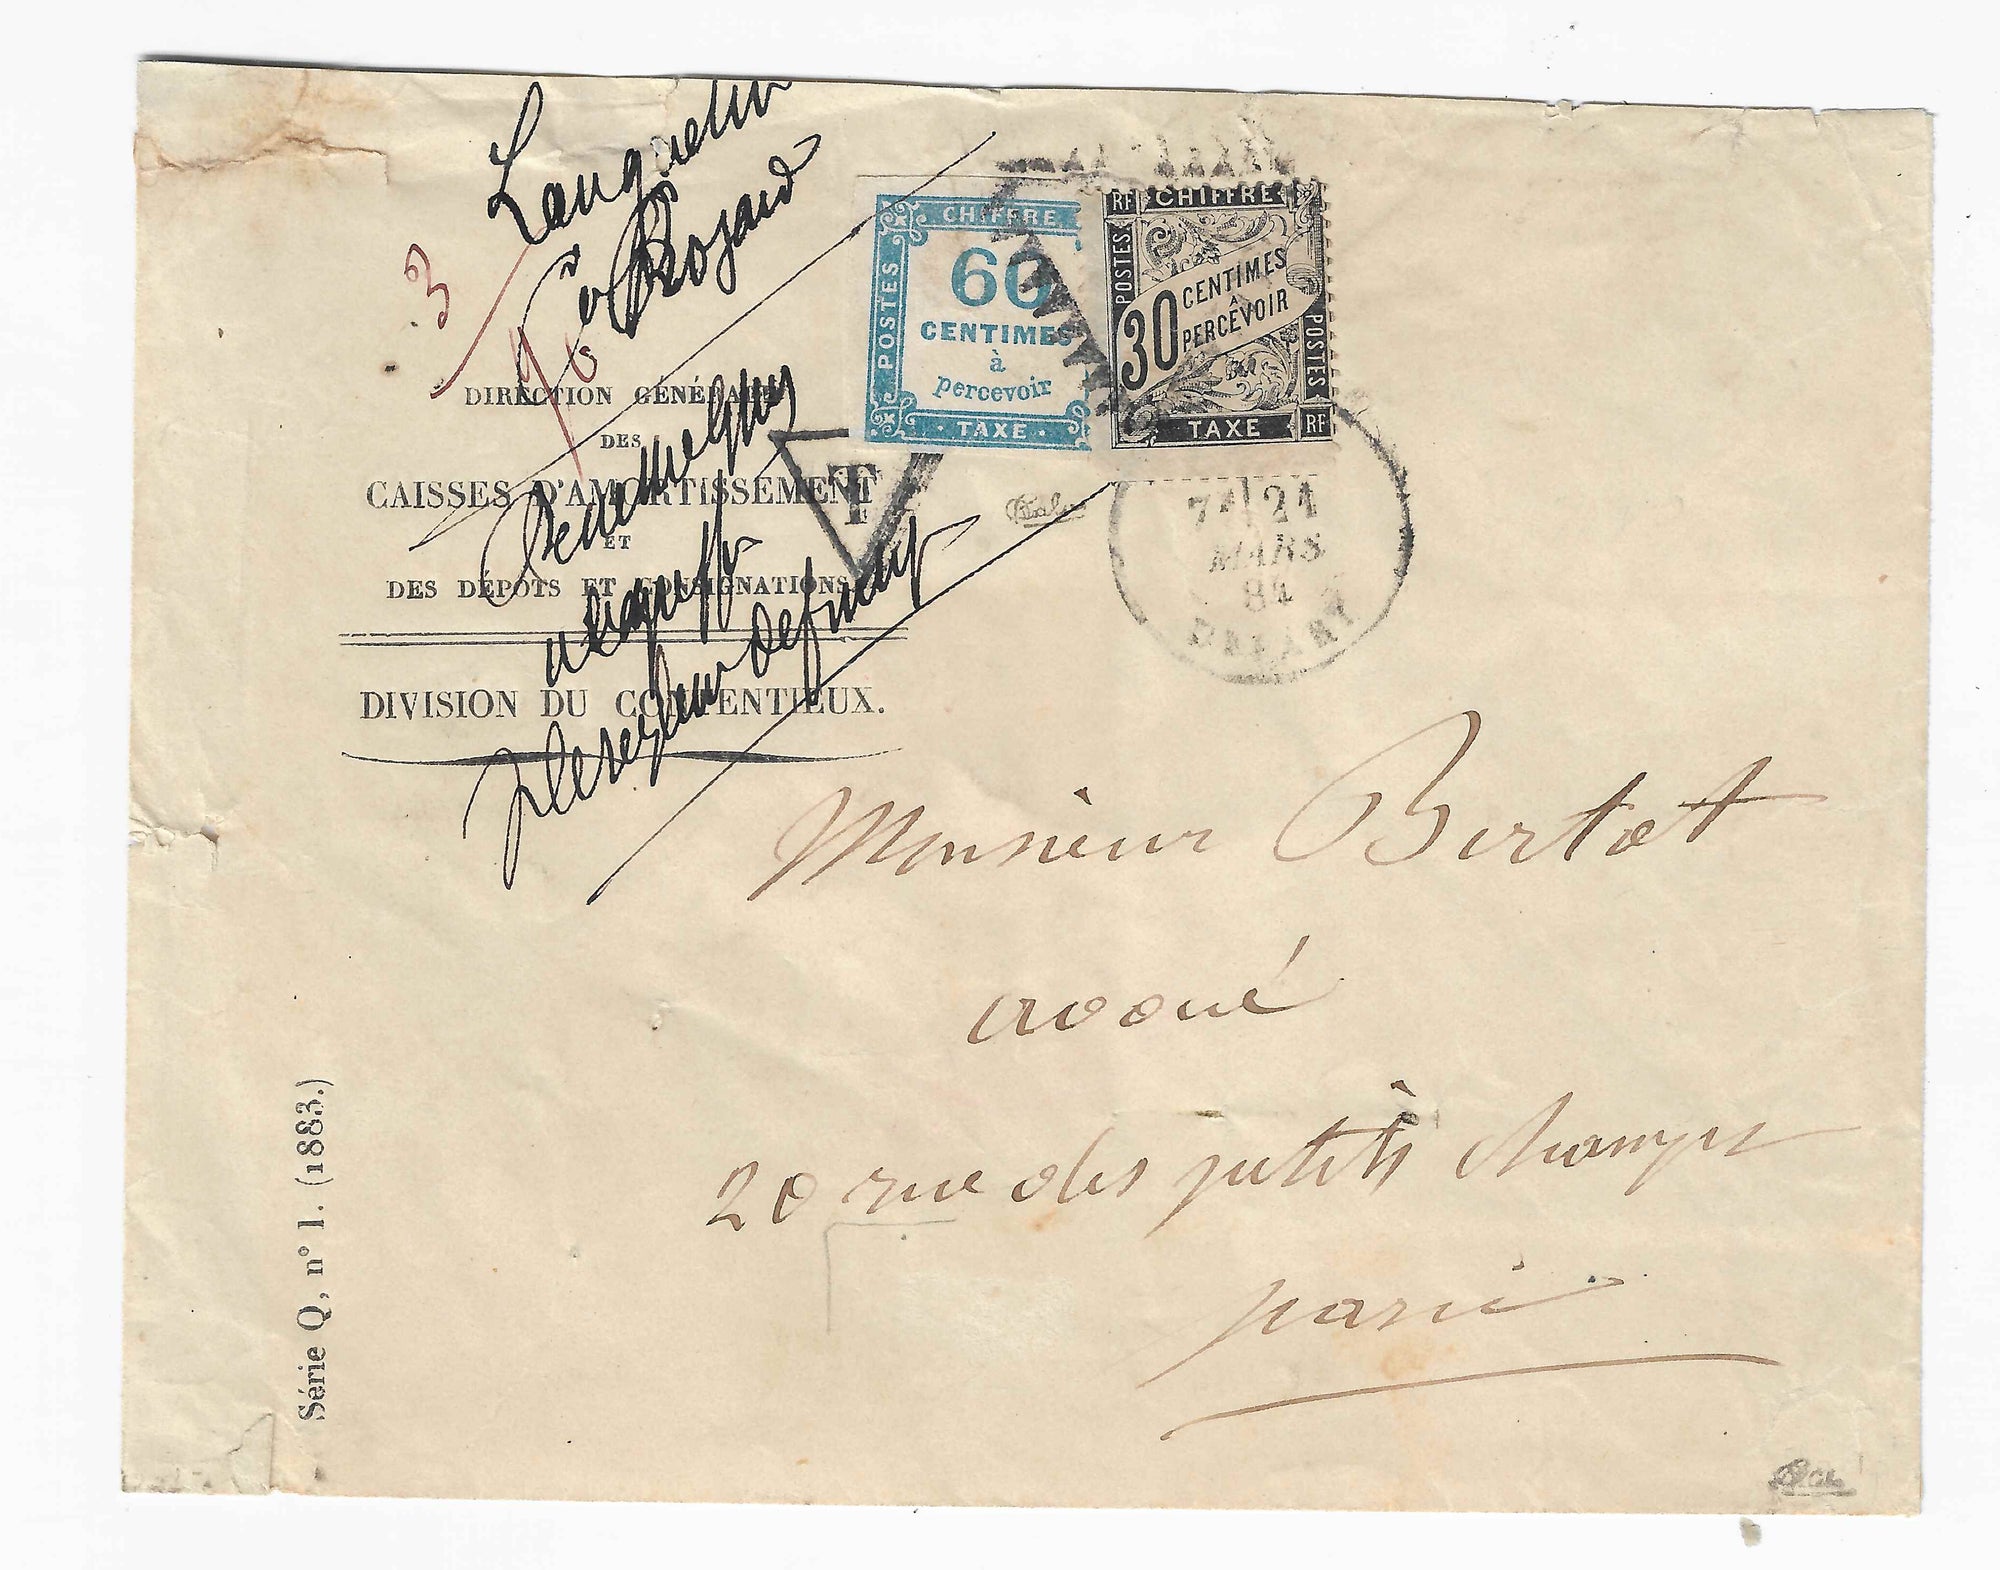 Languetin
Co Rozard
3
90
DIRECTION GÉNÉRALE
DES
CAISSES D'AMORTISSEMENT
ET
DES DÉPÔTS ET CONSIGNATIONS
DIVISION DU CONTENTIEUX.
CHIFFRE
POSTES
60
CENTIMES
à
percevoir
TAXE
RF CHIFFRE
POSTES
30 CENTIMES
À
PERCEVOIR
POSTES
TAXE RF
T
7E 21
MARS
84
DEPART
Monsieur Bertot
avoué
20 rue des petits champs
paris
Série Q, n° 1. (1883.)